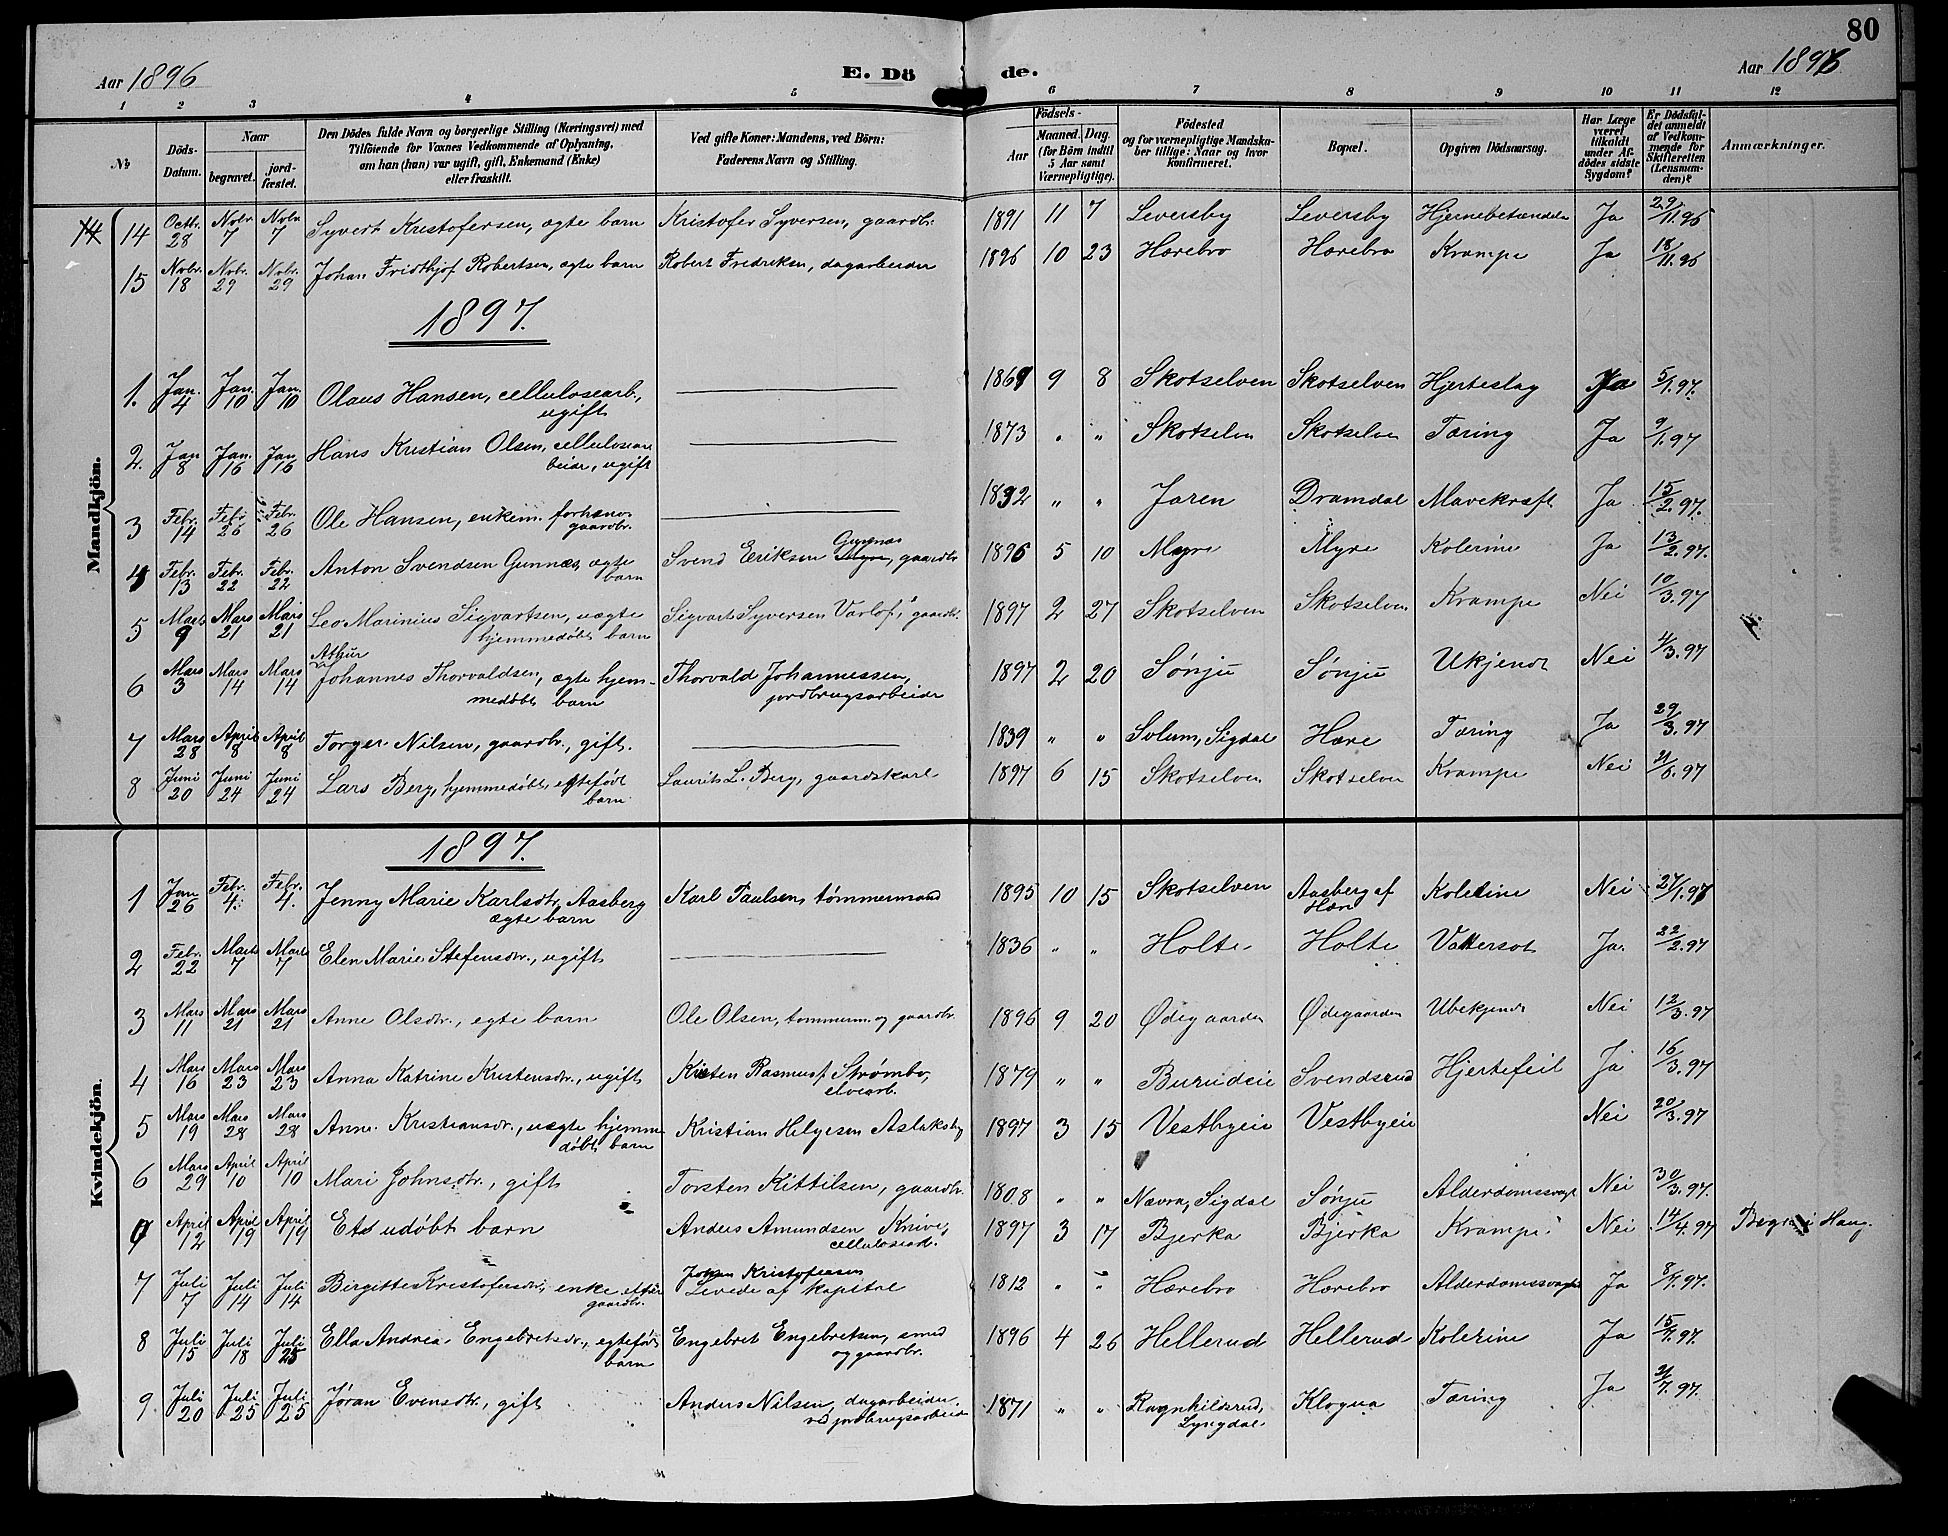 80
Aar 1896
E. Dö de.
Aar 1896
1 2 3 4 5 6 7 8 9 10 11 12
No
Döds-Datum.
Naar
begravet. jord-fæstet.
Den Dödes fulde Navn og borgerlige Stilling (Næringsvei) med
Tilföiende for Voxnes Vedkommende af Oplysning,
om han (hun) var ugift, gift, Enkemand (Enke)
eller fraskilt.
Ved gifte Koner: Mandens, ved Börn:
Faderens Navn og Stilling.
Födsels-
Aar Maaned. Dag.
(for Börn indtil
5 Aar samt
Værnepligtige).
Födested
og for værnepligtige Mandska-
ber tillige: Naar og hvor
konfirmeret.
Bopæl.
Opgiven Dödsaarsag.
Har Læge
været
tilkaldt
under Af-
dödes sidste
Sygdom?
Er Dödsfal-
det anmeldt
af Vedkom-
mende for
Skifteretten
(Lensman-
den)?
Anmærkninger.
Mandkjön.
14 14 Octbr. 28 Novbr. 7 Novbr. 7 Syvert Kristofersen, ægte barn Kristofer Syversen, gaardbr. 1891 11 7 Leversby Leversby Hjernebetændelse Ja 29/11.96
15 Novbr. 18 Novbr. 29 Novbr. 29 Johan Fridthjof Robertsen, ægte barn Robert Fredriksen, dagarbeider 1896 10 23 Hærebro Hærebro Krampe Ja 18/11.96
1897.
1. Jan. 4 Jan. 10 Jan. 10 Olaus Hansen, cellulosearb.,
ugift 1869 9 8 Skotselven Skotselven Hjerteslag Ja 5/1.97.
2. Jan 8 Jan. 16 Jan 16 Hans Kristian Olsen, cellulosear-
beider, ugift 1873 " " Skotselven Skotselven Tæring Ja 9/1.97
3 Febr. 14 Febr. 26 Febr. 26 Ole Hansen, enkem. forhenv.
gaardbr. 1832 " " Jaren Dramdal Mavekræft Ja 15/2.97.
4 Febr. 13 Febr. 22 Febr. 22 Anton Svendsen Gunnæs, ægte
barn Svend Eriksen Gunnæs Myre, gaardbr 1896 5 10 Myre Myre Kolerine Ja 13/2.97.
5 Mars 9 Mars 21 Mars 21 Leo Marinius Sigvartsen, uægte
hjemmedøbt barn Sigvart Syversen Varlof, gaardbr. 1897 2 27 Skotselven Skotselven Krampe Nei 10/3.97
6 Mars 3 Mars 14 Mars 14 Athur
Johannes Thorvaldsen, ægte hjem-
medøbt barn Thorvald Johannessen,
jordbrugsarbeider 1897 2 20 Sønju Sønju Ukjendt Nei 4/3.97
7 Mars 28 April 8 April 8 Torger Nilsen, gaardbr., gift. 1839 " " Solum, Sigdal Hære Tæring Ja 29/3.97
8 Juni 20 Juni 24 Juni 24 Lars Berg, hjemmedøbt, egtefødt
barn Laurits L. Berg, gaardskarl 1897 6 15 Skotselven Skotselven Krampe Nei 21/6.97
Kvindekjön.
1897.
1 Jan 26 Febr. 4. Febr. 4. Jenny Marie Karlsdtr. Aasberg
ægte barn Karl Paulsen, tømmermand 1895 10 15 Skotselven Aasberg af
Hære Kolerine Nei 27/1.97
2 Febr. 22 Marts 7 Marts 7 Elen Marie Stefensdtr., ugift 1836 " " Holte Holte Vattersot Ja. 22/2.97
3 Mars 11 Mars 21 Mars 21 Anne Olsdtr., egte barn Ole Olsen, tømmerm. og gaardbr. 1896 9 20 Ødegaarden Ødegaarden Ubekjendt Nei 12/3.97
4 Mars 16 Mars 23 Mars 23 Anna Katrine Kristensdtr., ugift Kristen Rasmus. Strømbo,
elvearb. 1879 " " Burudeie Svendsrud Hjertefeil Ja 16/3.97
5 Mars 19 Mars 28 Mars 28 Anne Kristiansdtr., uægte hjemme
døbt barn Kristian Helgesen Aslaksby 1897 3 15 Vestbyeie Vestbyeie Nei 20/3.97
6 Mars 29 April 10 April 10 Mari Johnsdtr., gift Torsten Kittilsen, gaardbr. 1808 " " Nævra, Sigdal Sønju Alderdomssvagh. Nei 30/3.97.
April 12 April 19 April 19 Et udøbt barn Anders Amundsen Knive,
cellulosearb. 1897 3 17 Bjerka Bjerka Krampe Nei 14/4.97 Begr. i Haug.
7 Juli 7 Juli 14 Juli 14 Birgitte Kristofersdtr., enke efter
gaardbr. Johan Kristofersen
Levede af kapital 1812 " " Hærebro Hærebro Alderdomssvaghed Ja 8/7.97.
8 Juli 15 Juli 18 Juli 25 Ella Andrea Engebretsdtr., egtefødt
barn Engebret Engebretsen, smed
og gaardbr. 1896 4 26 Hellerud Hellerud Kolerine Ja 15/7.97.
9 Juli 20 Juli 25 Juli 25 Jøran Evensdtr., gift Anders Nilsen, dagarbeider
ved jordbrugsarbeide 1871 " " Ragnhildsrud,
Lyngdal Klogna Tæring Ja 21/7.97.